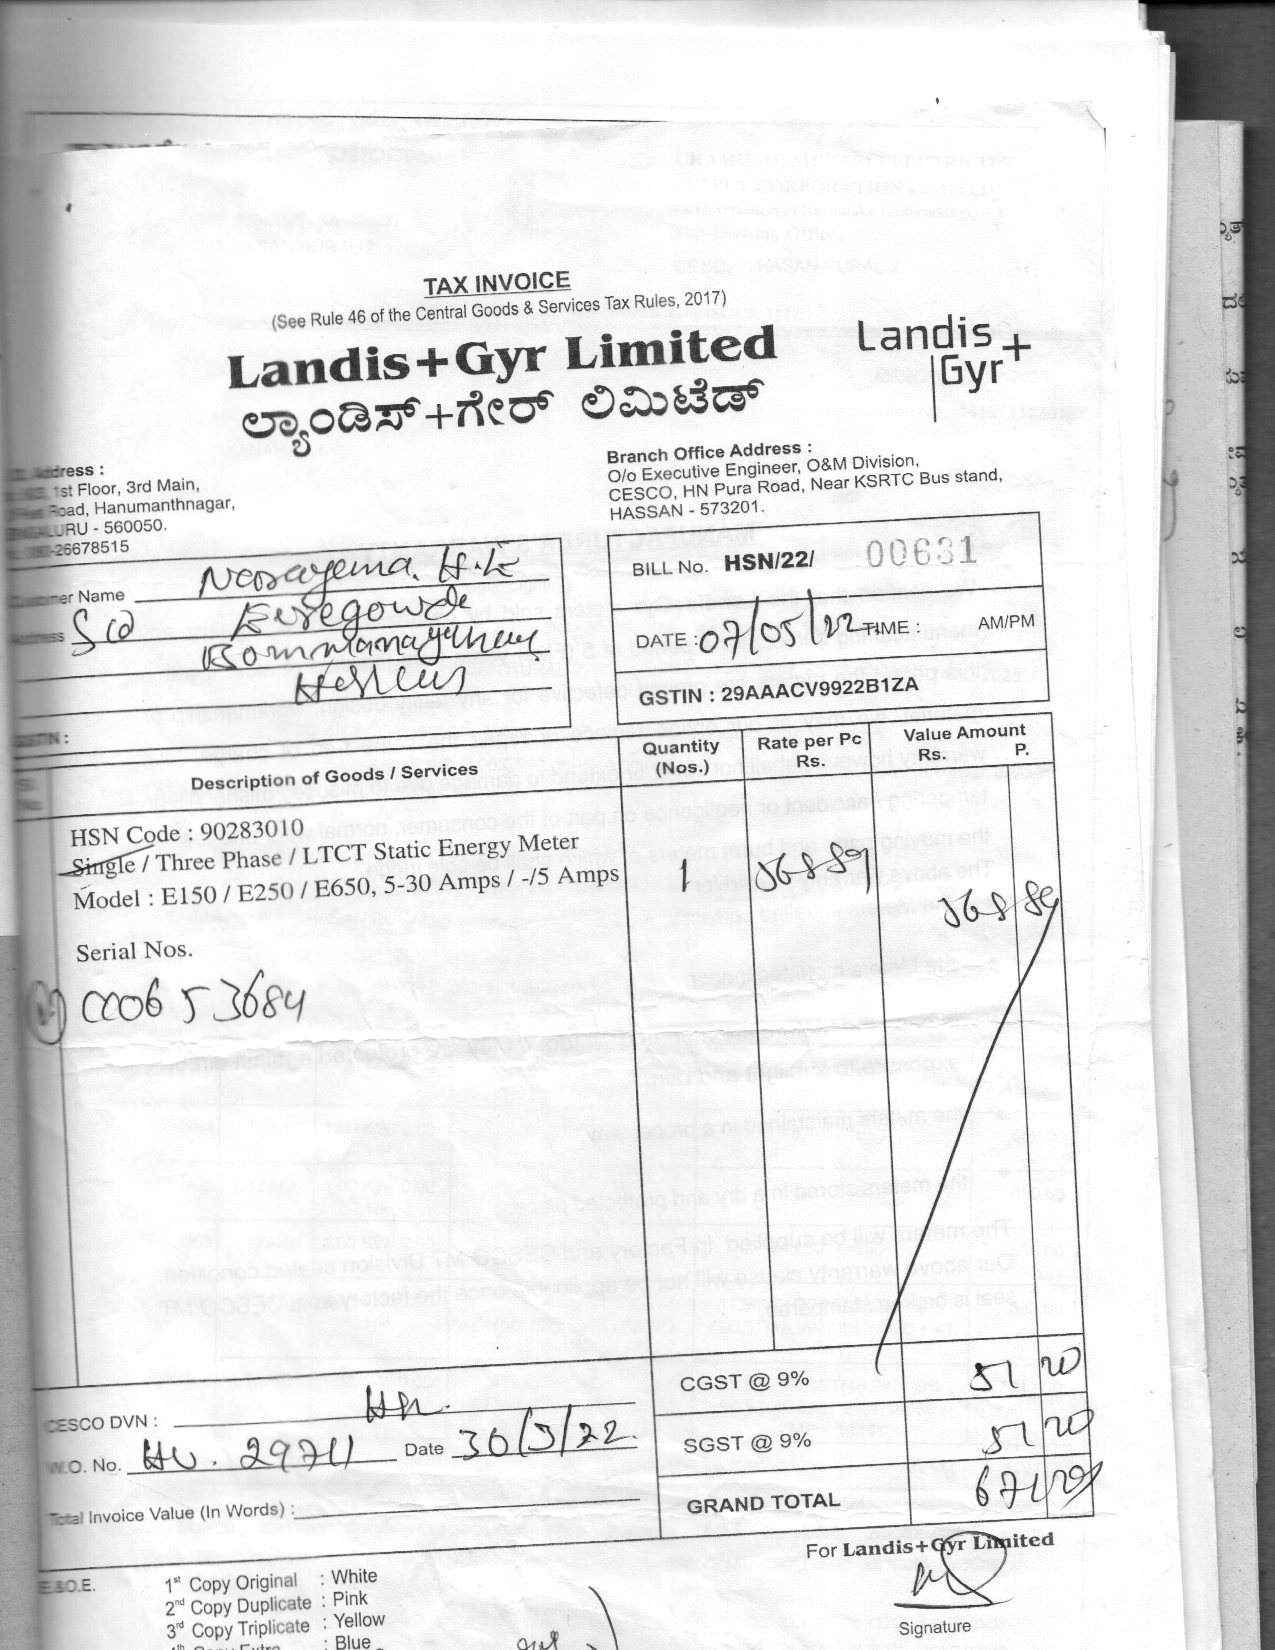 TAX INVOICE
(See Rule 46 of the Central Goods & Services Tax Rules, 2017)
Landis+Gyr Limited
ಲ್ಯಾಂಡಿಸ್+ಗೇರ್ ಲಿಮಿಟೆಡ್
Landis+
Gyr
Address :
1st Floor, 3rd Main,
Road, Hanumanthnagar,
- 560050.
-26678515
Branch Office Address :
O/o Executive Engineer, O&M Division,
CESCO, HN Pura Road, Near KSRTC Bus stand,
HASSAN - 573201.
Customer Name
Address
GSTIN :
BILL No. HSN/22/ 00631
DATE : 07/05/22 TIME : AM/PM
GSTIN : 29AAACV9922B1ZA
Sl. No.
Description of Goods / Services
Quantity (Nos.)
Rate per Pc Rs.
Value Amount Rs. P.
HSN Code : 90283010
Single / Three Phase / LTCT Static Energy Meter
Model : E150 / E250 / E650, 5-30 Amps / -/5 Amps
1 568 89 568 89
Serial Nos.
53684
CGST @ 9% 51 20
SGST @ 9% 51 20
GRAND TOTAL 671 29
CESCO DVN : Hn.
W.O. No. 29711 Date 30/3/22.
Total Invoice Value (In Words) :
For Landis+Gyr Limited
Signature
E.&O.E.
1st Copy Original : White
2nd Copy Duplicate : Pink
3rd Copy Triplicate : Yellow
4th Copy Extra : Blue